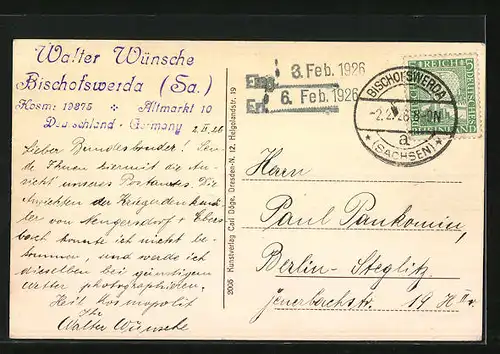 Walter Wünsche
Bischofswerda (Sa.)
Kosm: 19875 Altmarkt 10
Deutschland - Germany
2. II. 26
Lieber Bundesbruder! Sen-
de Ihnen hiermit die An-
sicht unseres Postamtes. Die
Ansichten der Kriegerdenkmä-
ler von Neugersdorf & Ebers-
bach konnte ich nicht be-
kommen, und werde ich
dieselben bei günstigem
Wetter photographieren.
Heil Kosmopolit
Ihr
Walter Wünsche
2035 Kunstverlag Carl Döge, Dresden-N. 12, Helgolandstr. 19
Eing. 3. Feb. 1926
Erl. 6. Feb. 1926
BISCHOFSWERDA
-2.2.26. 8-9N
a
* (SACHSEN) *
REICH
5
Herrn
Paul Pankomin,
Berlin-Steglitz
Jenerbachstr. 19 H II r.